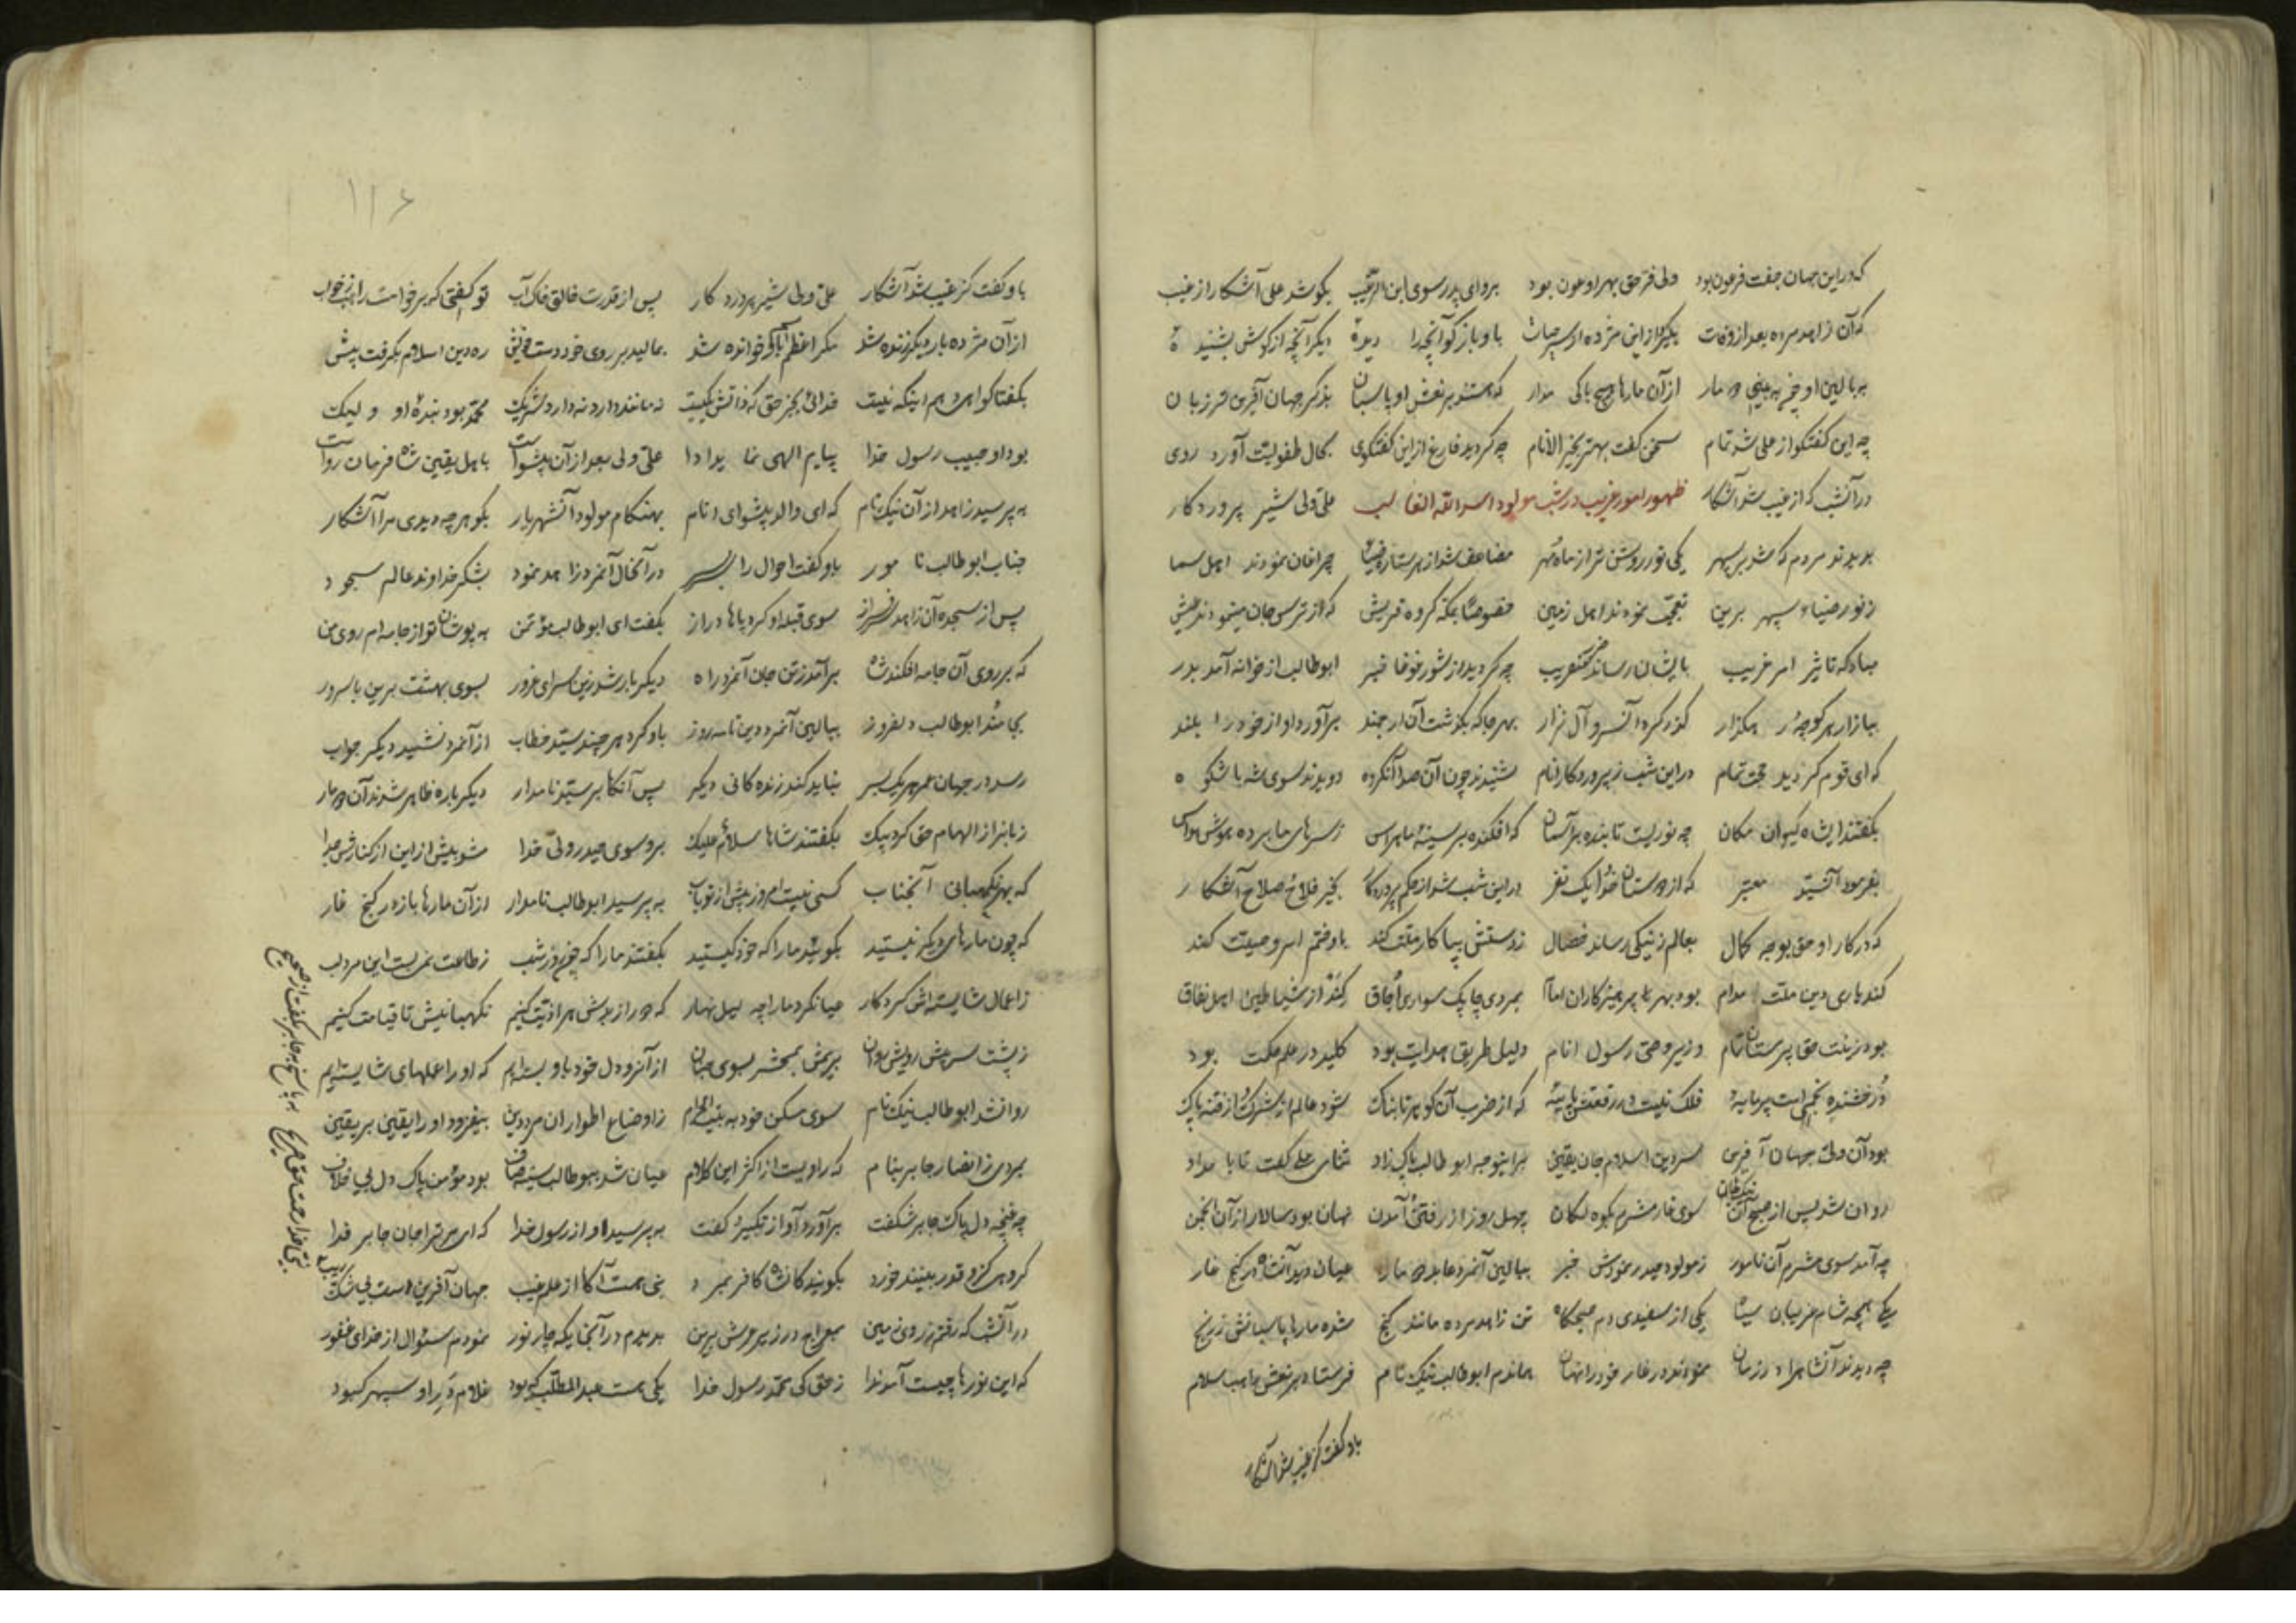 که در این جهان جفت فرعون بود ولی فر حق بهر او عون بود برو ای پدر سوی ابن الرقیب بگو شد علی آشکار از غیب
که آن زاهد مرده بعد از وفات بگیرد از این مژده از سر حیات باو باز گو آنچه را دیدهٔ دیگر آنچه از گوش بشنیدهٔ
به بالین او چونکه بینی دو مار از آن مارها هیچ باکی مدار که هستند بر نعش او پاسبان بذکر جهان آفرین تر زبان
چه این گفتگو از علی شد تمام سخن گفت بهتر بخیر الانام چه گردید فارغ از این گفتگوی بحال طفولیت آورد روی
ظهور امور غریب در شب مولود اسد الله الغالب
در آنشب که از غیب شد آشکار علی ولی شیر پروردگار
بدیدند مردم که شد بر سپهر یکی نور روشن تر از ماه و مهر مضاعف شد از هر ستاره ضیا چراغان نمودند اهل سما
ز نور ضیاء سپهر برین تعجب نمودند اهل زمین خصوصا بمکه گروه قریش که از ترس جان مینمودند طیش
مبادا که تاثیر امر غریب بایشان رساند ضرر عنقریب چه گردید از شور غوغا خبر ابوطالب از خانه آمد بدر
ببازار هر کوچه رهگذار گذر کرد آنسرو آل نزار بهر جا که بگذشت آن ارجمند برآورد آواز خود را بلند
که ای قوم گردید حجت تمام در این شب ز پروردگار انام شنیدند چون آن صدا آنگروه دویدند سوی شه با شکوه
بگفتند ایشاه کیوان مکان چه نوریست تابنده بر آسمان که افکنده بر سینهٔ ما هراس ز سرهای ما برده هوش و حواس
بفرمود آنسید معتبر که از دوستان خدا یک نفر در این شب شد از حکم پروردگار بخیر فلاح صلاح آشکار
که در کار او حق بوجه کمال بعالم ز نیکی رساند خصال ز دستش بپا کار ملت کند باو ختم امر وصیت کند
کند یاری دین ملت مدام بود بهر پرهیزکاران امام بمردی چابک سواری آفاق کند از شیاطین اهل نفاق
بود زینت حق پرستان تمام وزیر وصی رسول انام دلیل طریق هدایت بود کلید در علم حکمت بود
درخشنده نجمی است پر مایه فلک نیست در رفعتش پایهٔ که از ضرب آن گوهر تابناک شود عالم از شرک از فتنه پاک
بود آن ولی جهان آفرین سر دین اسلام جان یقین براینوجه ابوطالب پاک زاد ثنای علی گفت تا بامداد
روان شد پس از صبح آن نیک ظن سوی غار مشرم بکوه لکان چهل روز از رفتن آمدن نهان بود سالار از آن انجمن
چه آمد سوی مشرم آن نامور ز مولود حیدر نمودش خبر ببالین آنمرد عابد دو مار عیان دید آنشاه در کنج غار
یکی همچه شام غریبان سیاه یکی از سفیدی دم صبحگاه تن زاهد مرده مانند گنج شده مارها پاسبانش ز رنج
چه دیدند آنشاه را در زمان نمودند در غار خود را نهان بماندم ابوطالب نیک نام فرستاد بر نعش راهب سلام
باو گفت کز غیب شد آشکار
۱۱۶
باو گفت کز غیب شد آشکار علی ولی شیر پروردگار پس از قدرت خالق خاک آب تو گفتی که برخواست راهب ز خواب
از آن مژده بار دیگر زنده شد مگر اعظم آنجا گر خوانده شد بمالید بر روی خود دست خویش ره دین اسلام بگرفت پیش
بگفتا گواهی دهم اینکه نیست خدائی بجز حق که ذاتش یکیست نه مانند دارد نه دارد شریک محمد بود بندهٔ او ولیک
بود او حبیب رسول خدا پیام الهی نماید ادا علی ولی بعد از آن پیشواست باهل یقین شاه فرمان رواست
به پرسید زاهد از آن نیک نام که ای والد پیشوای انام بهنگام مولود آنشهریار بگو هر چه دیدی مرا آشکار
جناب ابوطالب نامور باو گفت احوال را سر بسر در آنحال آنمرد زاهد نمود بشکر خداوند عالم سجود
پس از سجده آن زاهد سرفراز سوی قبله او کرد پاها دراز بگفت ای ابوطالب مؤتمن به پوشان تو از جامه ام روی من
که بر روی آن جامه افکند شاه برآمد ز تن جان آنمرد راه دیگر بار شد زین سرای غرور بسوی بهشت برین با سرور
بجا ماند ابوطالب دلفروز ببالین آنمرد دین تا سه روز باو کرد هر چند سید خطاب از آنمرد نشنید دیگر جواب
رسد در جهان عمر هر یک بسر نیاید کند زنده کانی دیگر پس آنگاه بر سید نامدار دیگر باره ظاهر شدند آن دو مار
زبانرا ز الهام حق کرد پیک بگفتند شاها سلام علیک برو سوی حیدر ولی خدا مشو بیش از این از کنارش جدا
که بهر نگهبانی آنجناب کسی نیست امروز بیش از تو باب به پرسید ابوطالب نامدار از آن مارها باز در کنج غار
که چون مارهای دیگر نیستید بگوئید ما را که خود کیستید بگفتند ما را که چون روز شب ز طاعت نمی بست این مرد لب
ز اعمال شایسته اش کردگار عیان کرد ما را چه لیل نهار که دور از برش هر اذیت کنیم نگهبانیش تا قیامت کنیم
ز پشت سرش پیش رویش روان بریمش بمحشر بسوی جنان از آنرو دل خود باو بسته ایم که او را عملهای شایسته ایم
روانشد ابوطالب نیک نام سوی مسکن خود به بیت الحرام ز اوضاع اطوار آن مرد دین بیفزود او را یقین بر یقین
بمردی ز انصار جابر بنام که راویست از اکثر این کلام عیان شد چو ابوطالب سینه صاف بود مؤمن پاک دل بی خلاف
چه غنچه دل پاک جابر شگفت برآورد آواز تکبیر گفت به پرسید او از رسول خدا که ای بر تو را جان جابر فدا
گروهی کزو قدر بینند خورد بگویند کانشاه کافر بمرد نبی هست آگاه از علم غیب جهان آفرین است بی شک ریب
در آنشب که رفتم ز روی زمین بمعراج در زیر عرش برین بدیدم در آنجایگه چار نور نمودم سئوال از خدای غفور
که این نورها چیست آمد ندا ز حق کی محمد رسول خدا یکی هست عبدالمطلب که بود غلام در او سپهر کبود
به پاسخ به جابر بگفت از صحیح نبی خدا رحمت حق صریح